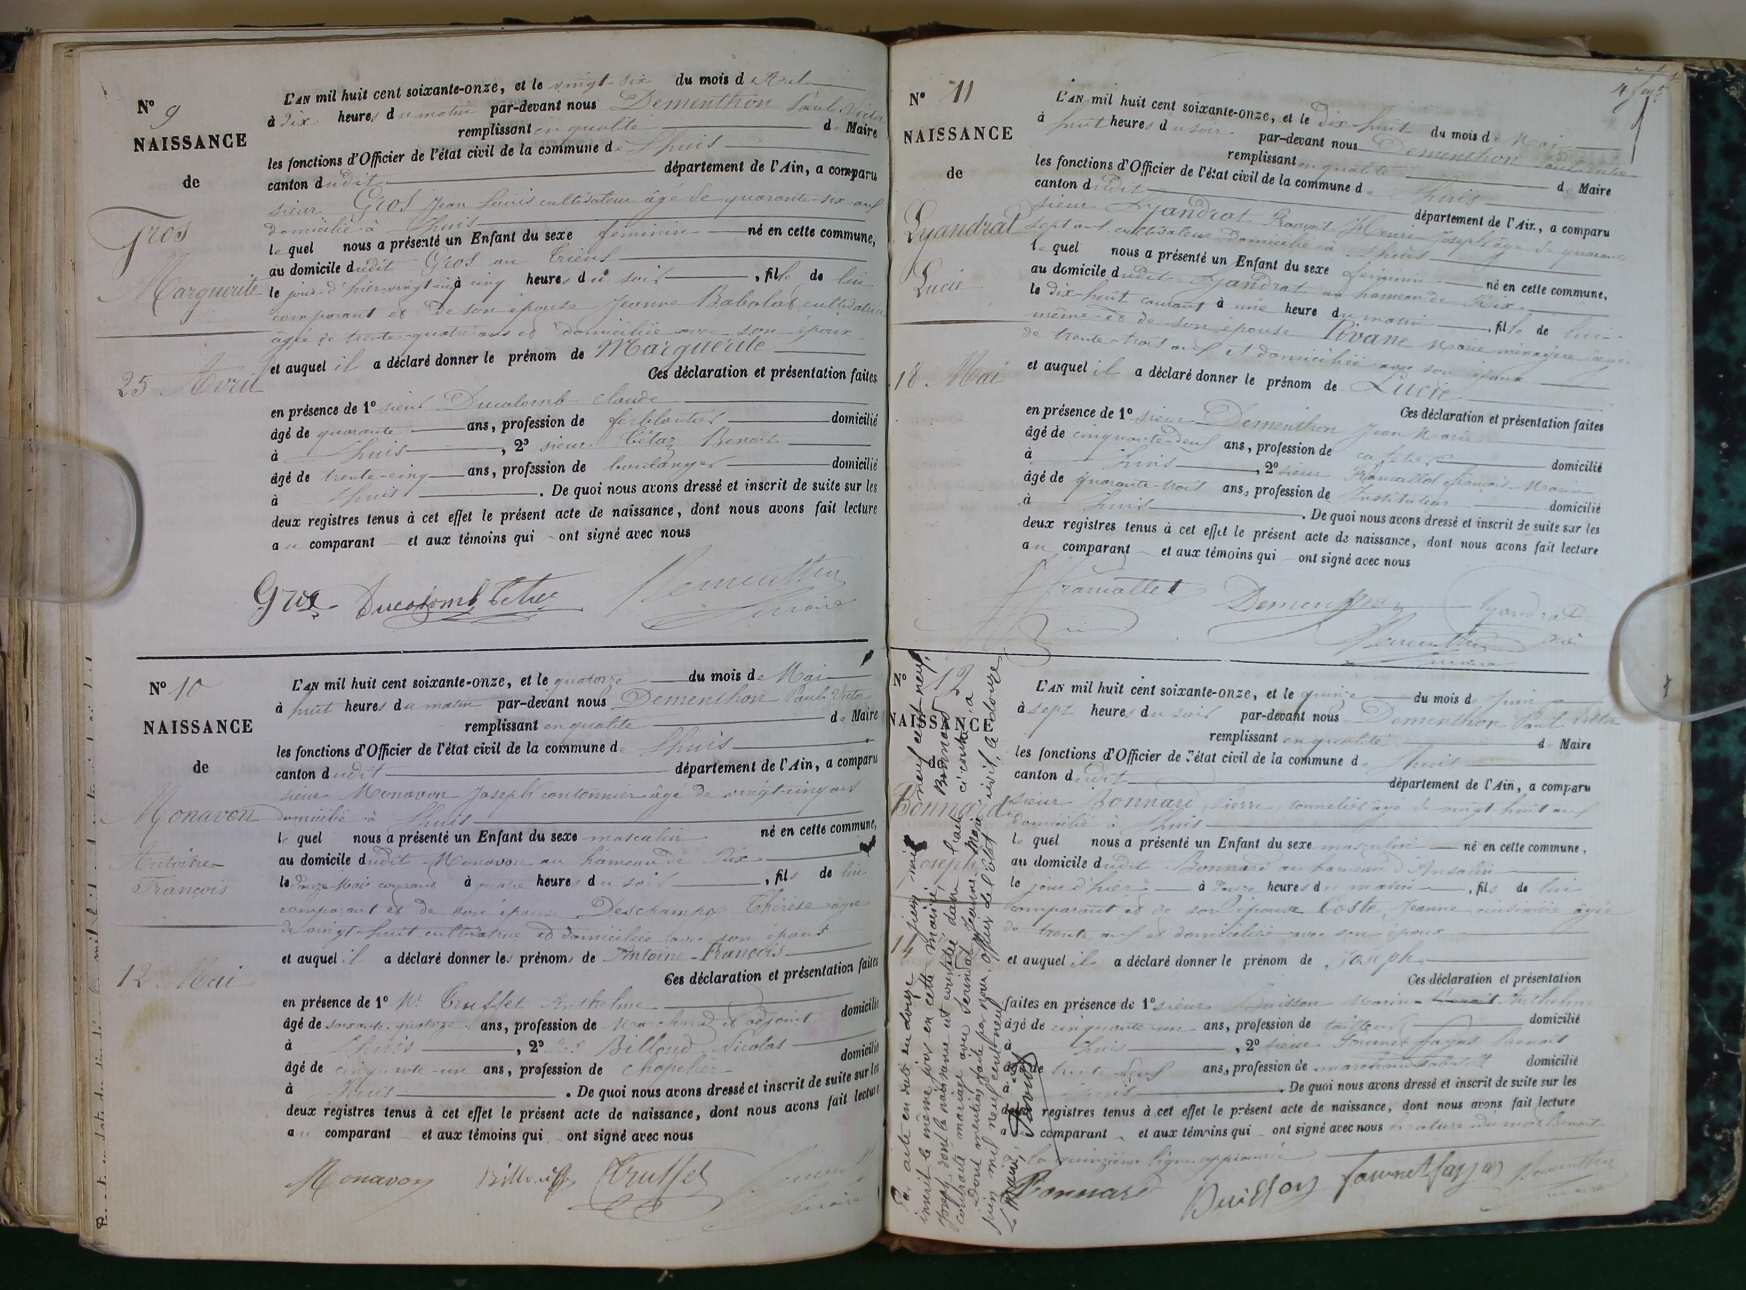 N° 9
NAISSANCE
de
Gros
Marguerite
25 Avril
L'AN mil huit cent soixante-onze, et le vingt-six du mois d'Avril
à dix heures du matin par-devant nous Dementhon Paul Victor
remplissant en qualité de Maire
les fonctions d'Officier de l'état civil de la commune de Lhuis
canton dudit département de l'Ain, a comparu
sieur Gros Jean Louis cultivateur âgé de quarante-six ans
domicilié à Lhuis
lequel nous a présenté un Enfant du sexe féminin né en cette commune,
au domicile dudit Gros au
le jour d'hier vingt-cinq à cinq heures du soir, fille de lui
comparant et de son épouse Jeanne Babolat cultivatrice
âgée de trente-quatre ans et domiciliée avec son époux
et auquel il a déclaré donner le prénom de Marguerite
Ces déclaration et présentation faites
en présence de 1° sieur Ducolomb Claude
âgé de quarante ans, profession de ferblantier domicilié
à Lhuis, 2° sieur Benoit
âgé de trente-cinq ans, profession de boulanger domicilié
à Lhuis. De quoi nous avons dressé et inscrit de suite sur les
deux registres tenus à cet effet le présent acte de naissance, dont nous avons fait lecture
au comparant et aux témoins qui ont signé avec nous
Gros Ducolomb Dementhon
maire
N° 10
NAISSANCE
de
Monavon
Antoine
François
12 Mai
L'AN mil huit cent soixante-onze, et le quatorze du mois de Mai
à huit heures du matin par-devant nous Dementhon Paul Victor
remplissant en qualité de Maire
les fonctions d'Officier de l'état civil de la commune de Lhuis
canton dudit département de l'Ain, a comparu
sieur Monavon Joseph cantonnier âgé de vingt cinq ans
domicilié à Lhuis
lequel nous a présenté un Enfant du sexe masculin né en cette commune,
au domicile dudit Monavon au hameau de Rix
le douze Mai courant à heures du soir, fils de lui
comparant et de son épouse Deschamps Thérèse âgée
de vingt-huit cultivatrice et domiciliée avec son époux
et auquel il a déclaré donner les prénoms de Antoine-François
Ces déclaration et présentation faites
en présence de 1° Mr Trusset Anthelme
âgé de soixante quatorze ans, profession de Marchand et adjoint domicilié
à Lhuis, 2° Billoud Nicolas
âgé de cinquante-un ans, profession de chapelier domicilié
à Lhuis. De quoi nous avons dressé et inscrit de suite sur les
deux registres tenus à cet effet le présent acte de naissance, dont nous avons fait lecture
au comparant et aux témoins qui ont signé avec nous
Monavon Billoud Trusset
maire
N° 11
NAISSANCE
de
Lyandrat
Lucie
18 Mai
L'AN mil huit cent soixante-onze, et le dix-huit du mois de Mai
à huit heures du soir par-devant nous Dementhon
remplissant en qualité de Maire
les fonctions d'Officier de l'état civil de la commune de Lhuis
canton dudit département de l'Ain, a comparu
sieur Lyandrat Joseph âgé de quarante
sept ans cultivateur domicilié à Lhuis
lequel nous a présenté un Enfant du sexe féminin né en cette commune,
au domicile dudit Lyandrat au hameau de Rix
le dix-huit courant à une heure du matin, fille de lui-
même et de son épouse Pivane Marie ménagère âgée
de trente-trois ans et domiciliée avec son époux
et auquel il a déclaré donner le prénom de Lucie
Ces déclaration et présentation faites
en présence de 1° sieur Dementhon Jean Marie
âgé de cinquante-deux ans, profession de cafetier domicilié
à Lhuis, 2° sieur Framattet François Marie
âgé de quarante-trois ans, profession de Instituteur domicilié
à Lhuis. De quoi nous avons dressé et inscrit de suite sur les
deux registres tenus à cet effet le présent acte de naissance, dont nous avons fait lecture
au comparant et aux témoins qui ont signé avec nous
Framattet Dementhon Lyandrat
Dementhon
maire
N° 12
NAISSANCE
Bonnard
Joseph
14
L'AN mil huit cent soixante-onze, et le quinze du mois de Juin
à sept heures du soir par-devant nous Dementhon Paul Victor
remplissant en qualité de Maire
les fonctions d'Officier de l'état civil de la commune de Lhuis
canton dudit département de l'Ain, a comparu
sieur Bonnard Pierre, tonnelier âgé de vingt huit ans
domicilié à Lhuis
lequel nous a présenté un Enfant du sexe masculin né en cette commune,
au domicile dudit Bonnard au hameau d'Ansolin
le jour d'hier à heures du matin, fils de lui
comparant et de son épouse Coste Jeanne cuisinière âgée
de trente ans et domiciliée avec son époux
et auquel il a déclaré donner le prénom de Joseph
Ces déclaration et présentation
faites en présence de 1° sieur Buisson Marin Anthelme
âgé de cinquante-un ans, profession de tailleur domicilié
Lhuis, 2° sieur Fournet Fayas Benoit
de trente neuf ans, profession de marchand domicilié
Lhuis. De quoi nous avons dressé et inscrit de suite sur les
registres tenus à cet effet le présent acte de naissance, dont nous avons fait lecture
comparant et aux témoins qui ont signé avec nous rature du mot Benoit
la quinzième ligne approuvée
Bonnard Buisson Fournet fayas Dementhon
maire
acte en date du douze juin mil neuf cent neuf,
inscrit le même jour en cette mairie, Bonnard
Joseph, dont la naissance est constatée dans l'acte ci-contre, a
contracté mariage avec Jeanne Marie
Dont mention faite par nous officier de l'état civil, le douze
juin mil neuf cent neuf
Le Maire,